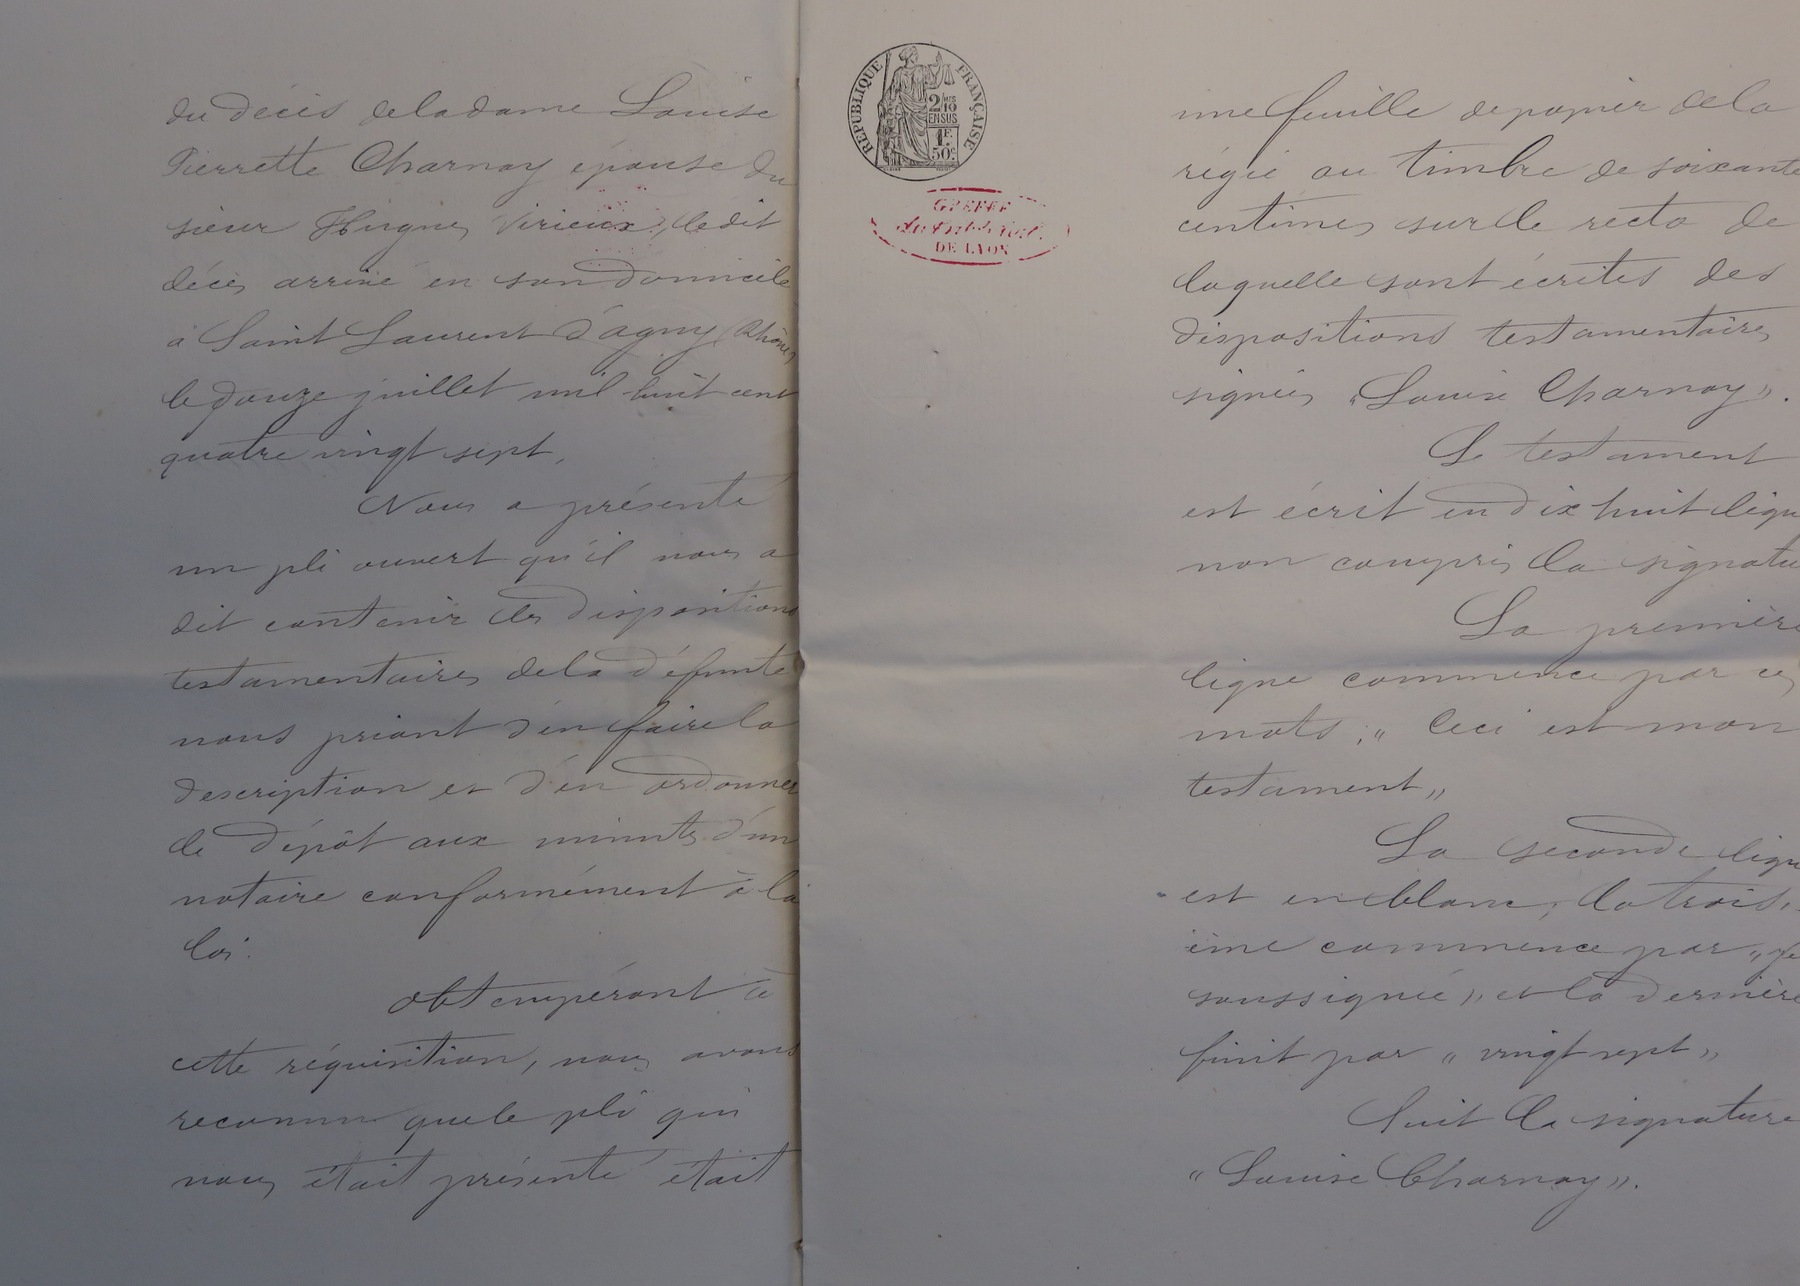 du décès de la dame Louise
Pierrette Charnay épouse du
sieur Virieux, le dit
décès arrivé en son domicile
à Saint Laurent d'agny (Rhône)
le douze juillet mil huit cent
quatre vingt sept,
Nous a présenté
un pli ouvert qu'il nous a
dit contenir les dispositions
testamentaires de la défunte
nous priant d'en faire la
description et d'en ordonner
le dépôt aux minutes d'un
notaire conformément à la
loi.
Obtempérant à
cette réquisition, nous avons
reconnu que le pli qui
nous était présenté était
RÉPUBLIQUE FRANÇAISE
2/10MES
EN SUS
1F.
50C.
GREFFE
DE LYON
une feuille de papier de la
régie au timbre de soixante
centimes sur le recto de
laquelle sont écrites des
dispositions testamentaires
signées "Louise Charnay".
Le testament
est écrit en dix huit lign
non compris la signatu
La première
ligne commence par ces
mots : " Ceci est mon
testament "
La seconde lign
est en blanc, la trois-
ième commence par " je
soussignée ", et la dernière
finit par " vingt sept "
Suit la signature
" Louise Charnay ".